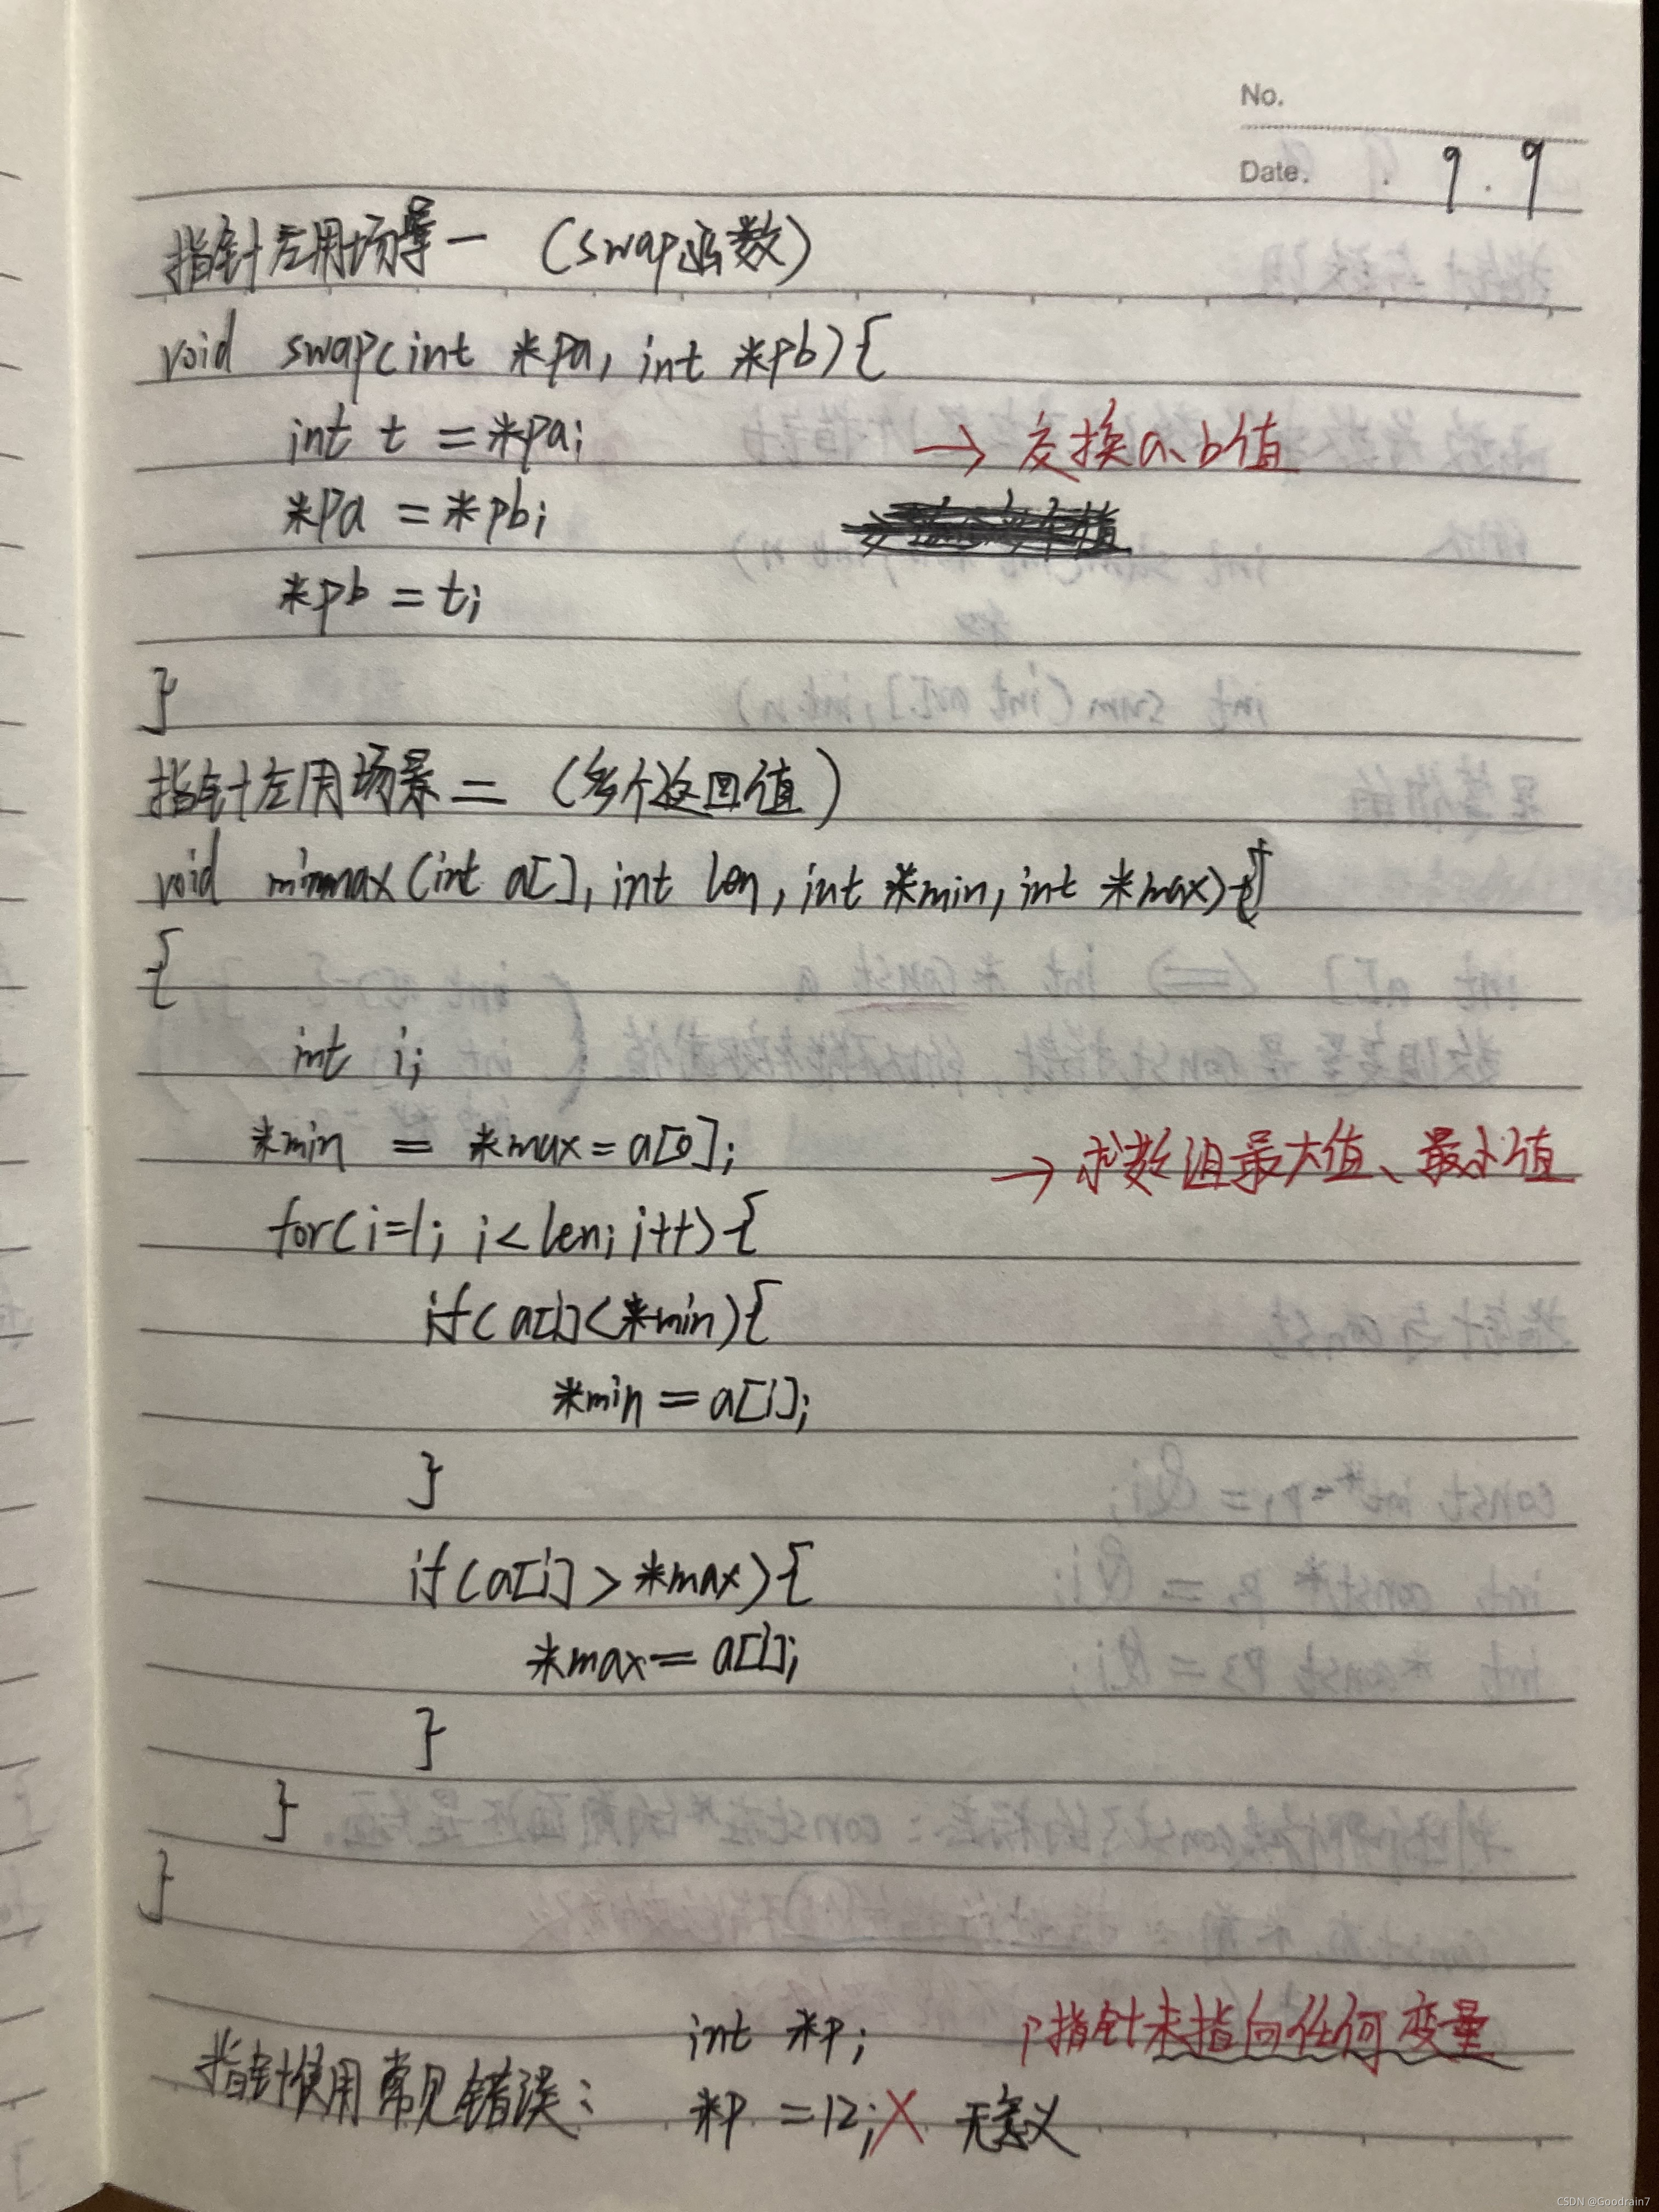 No.
Date. 9.9
指针应用场景一 (swap函数)
void swap(int *pa, int *pb){
int t = *pa; → 交换a、b值
*pa = *pb;
*pb = t;
}
指针应用场景二 (多个返回值)
void minmax(int a[], int len, int *min, int *max)
{
int i;
*min = *max = a[0]; → 求数组最大值、最小值
for(i=1; i<len; i++){
if(a[i]<*min){
*min = a[i];
}
if(a[i] > *max){
*max = a[i];
}
}
}
int *p; p指针未指向任何变量
指针使用常见错误: *p = 12; X 无意义
CSDN @Goodrain7